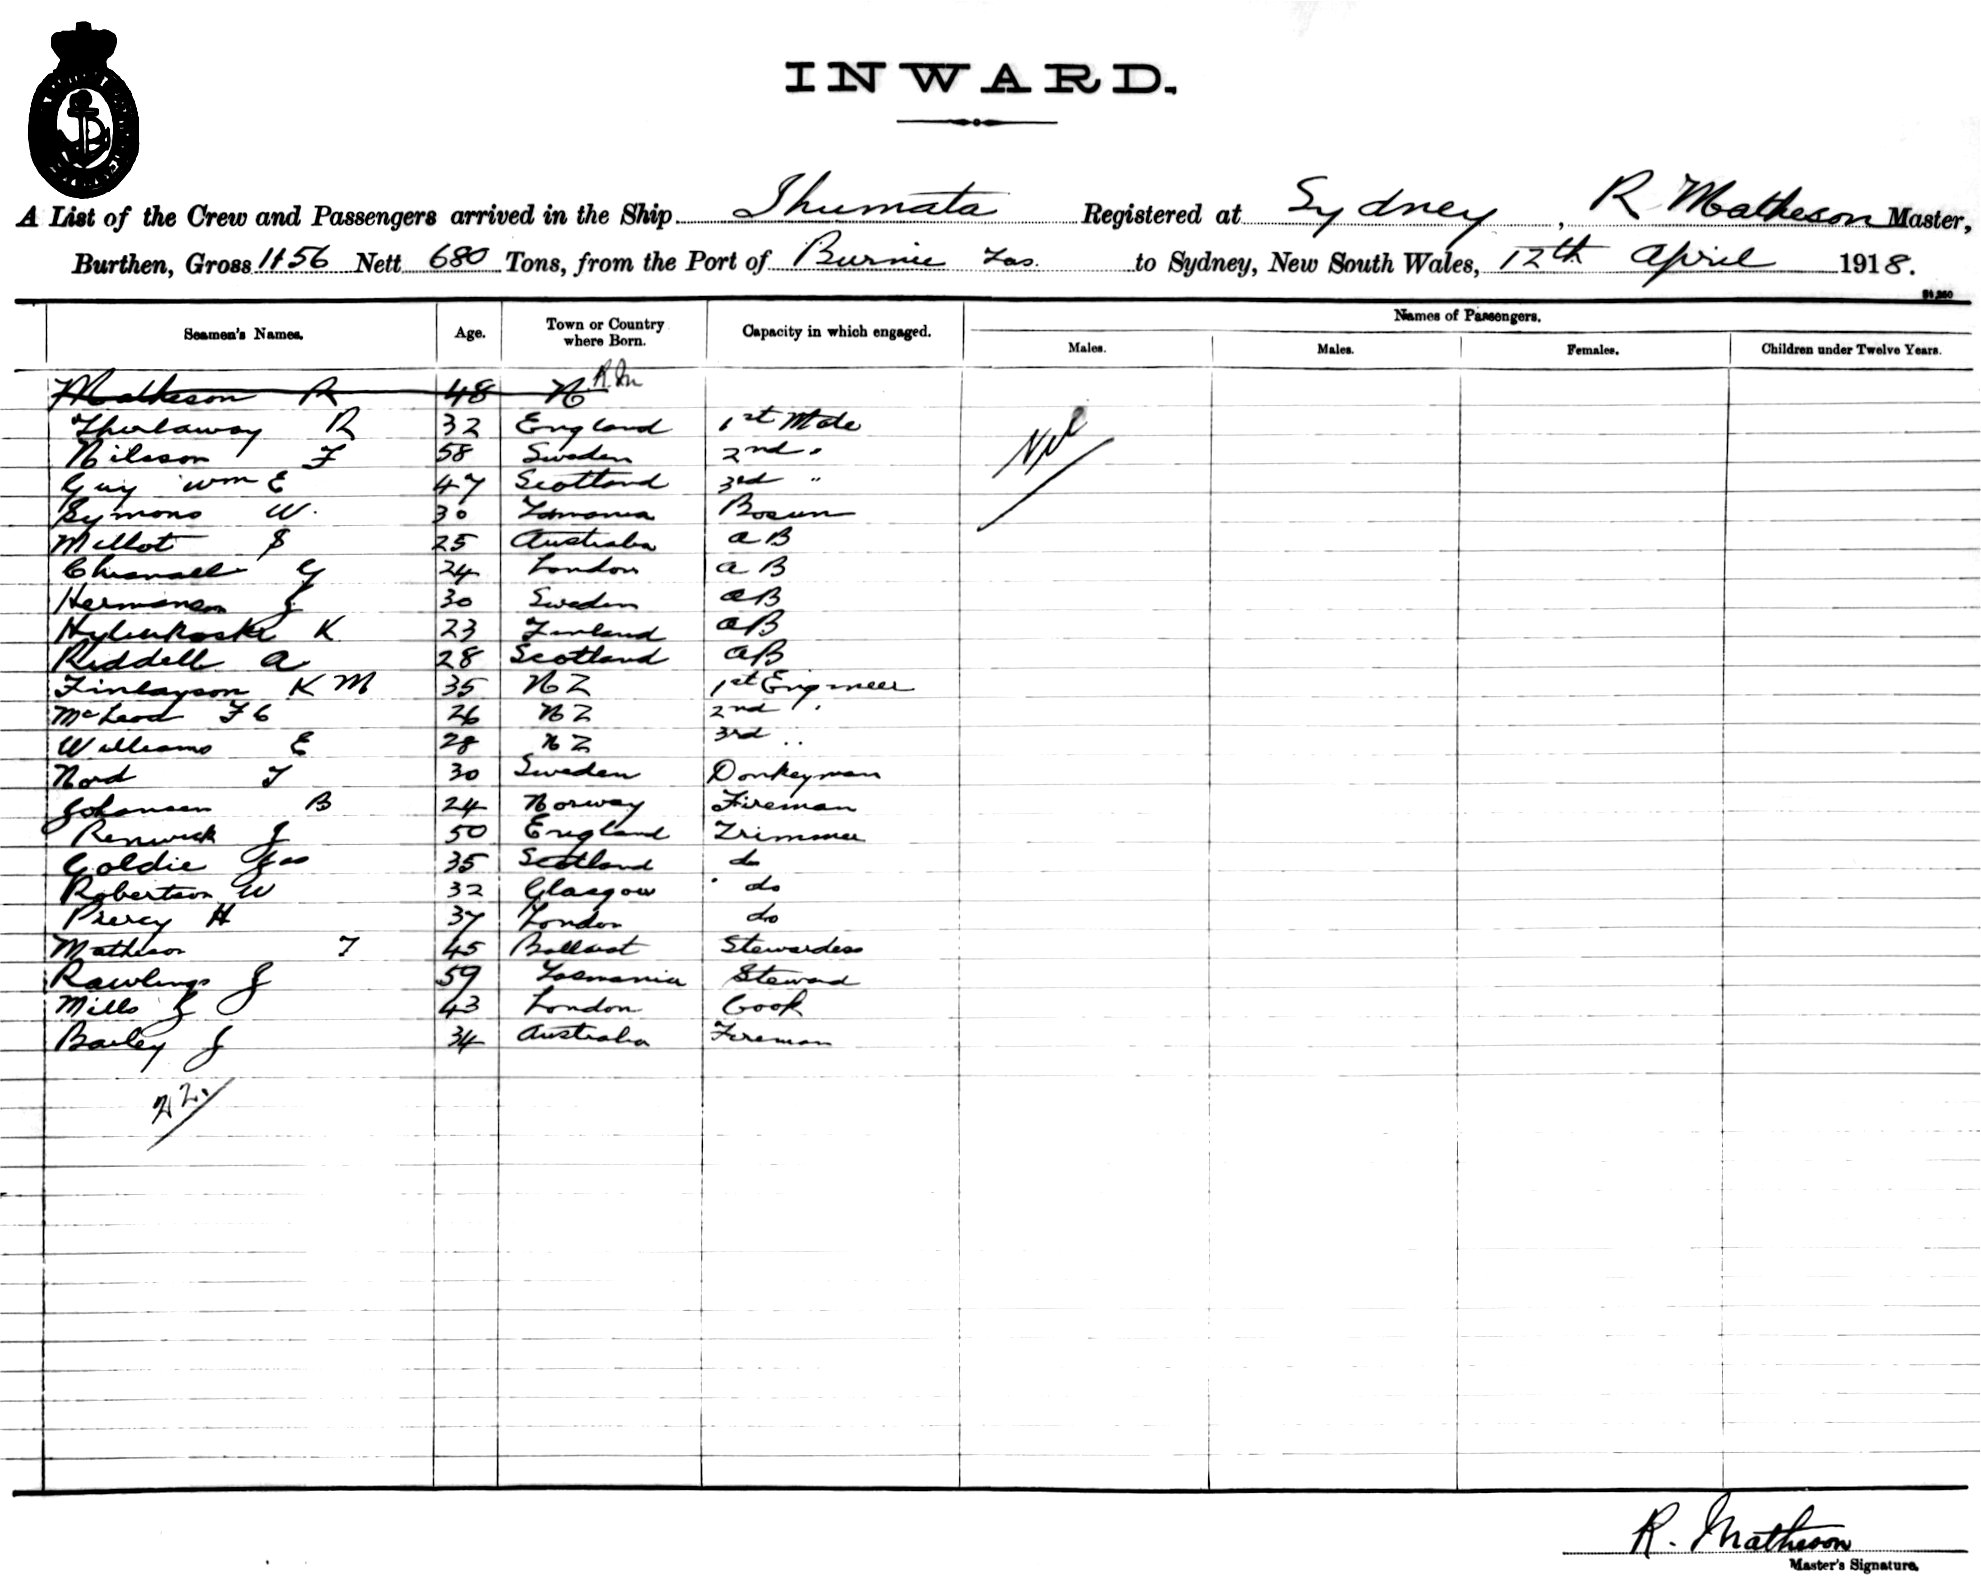 INWARD.
A List of the Crew and Passengers arrived in the Ship Ihumata Registered at Sydney, R Matheson Master,
Burthen, Gross 1156 Nett 680 Tons, from the Port of Burnie Tas. to Sydney, New South Wales, 12th April 1918.
Names of Passengers.
Seamen's Names. Age. Town or Country where Born. Capacity in which engaged. Males. Males. Females. Children under Twelve Years.
Matheson R 48 N R.M
R 32 England 1st Mate Nil
Nilsson F 58 Sweden 2nd "
Guy Wm E 47 Scotland 3rd "
Symons W. 30 Tasmania Bosun
Millot S 25 Australia AB
Chisnall G 24 London AB
Hermanson J 30 Sweden AB
K 23 Finland AB
Riddell A 28 Scotland AB
Finlayson K M 35 NZ 1st Engineer
McLeod F C 26 NZ 2nd "
Williams E 28 NZ 3rd "
Nord T 30 Sweden Donkeyman
Johansen B 24 Norway Fireman
Renwick J 50 England Trimmer
Goldie Jas 35 Scotland do
Robertson W 32 Glasgow do
Piercy H 37 London do
Matheson T 45 Stewardess
Rawlings J 59 Tasmania Steward
Mills J 43 London Cook
Bailey J 34 Australia Fireman
22.
R. Matheson
Master's Signature.